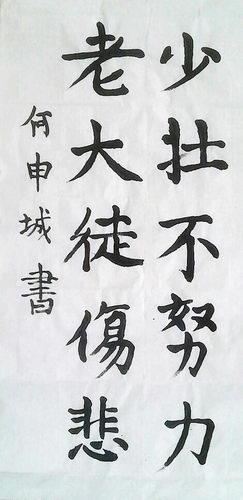 少壯不努力
老大徒傷悲
何申城書